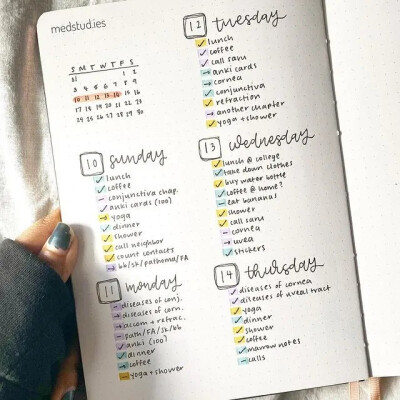 medstud.ies
S M T W T F S
31 1 2
3 4 5 6 7 8 9
10 11 12 13 14 15 16
17 18 19 20 21 22 23
24 25 26 27 28 29 30
10 sunday
lunch
coffee
conjunctiva chap.
anki cards (100)
yoga
dinner
shower
call neighbor
count contacts
bb/sk/pathoma/FA
11 monday
diseases of conj.
diseases of corn.
accom + refrac.
path/FA/sk/bb
anki (100)
dinner
coffee
yoga + shower
12 tuesday
lunch
coffee
call saru
anki cards
cornea
conjunctiva
refraction
another chapter
yoga + shower
13 wednesday
lunch @ college
take down clothes
buy water bottle
coffee @ home?
eat bananas
shower
call saru
cornea
uvea
stickers
14 thursday
diseases of cornea
diseases of uveal tract
yoga
dinner
shower
coffee
marrow notes
calls